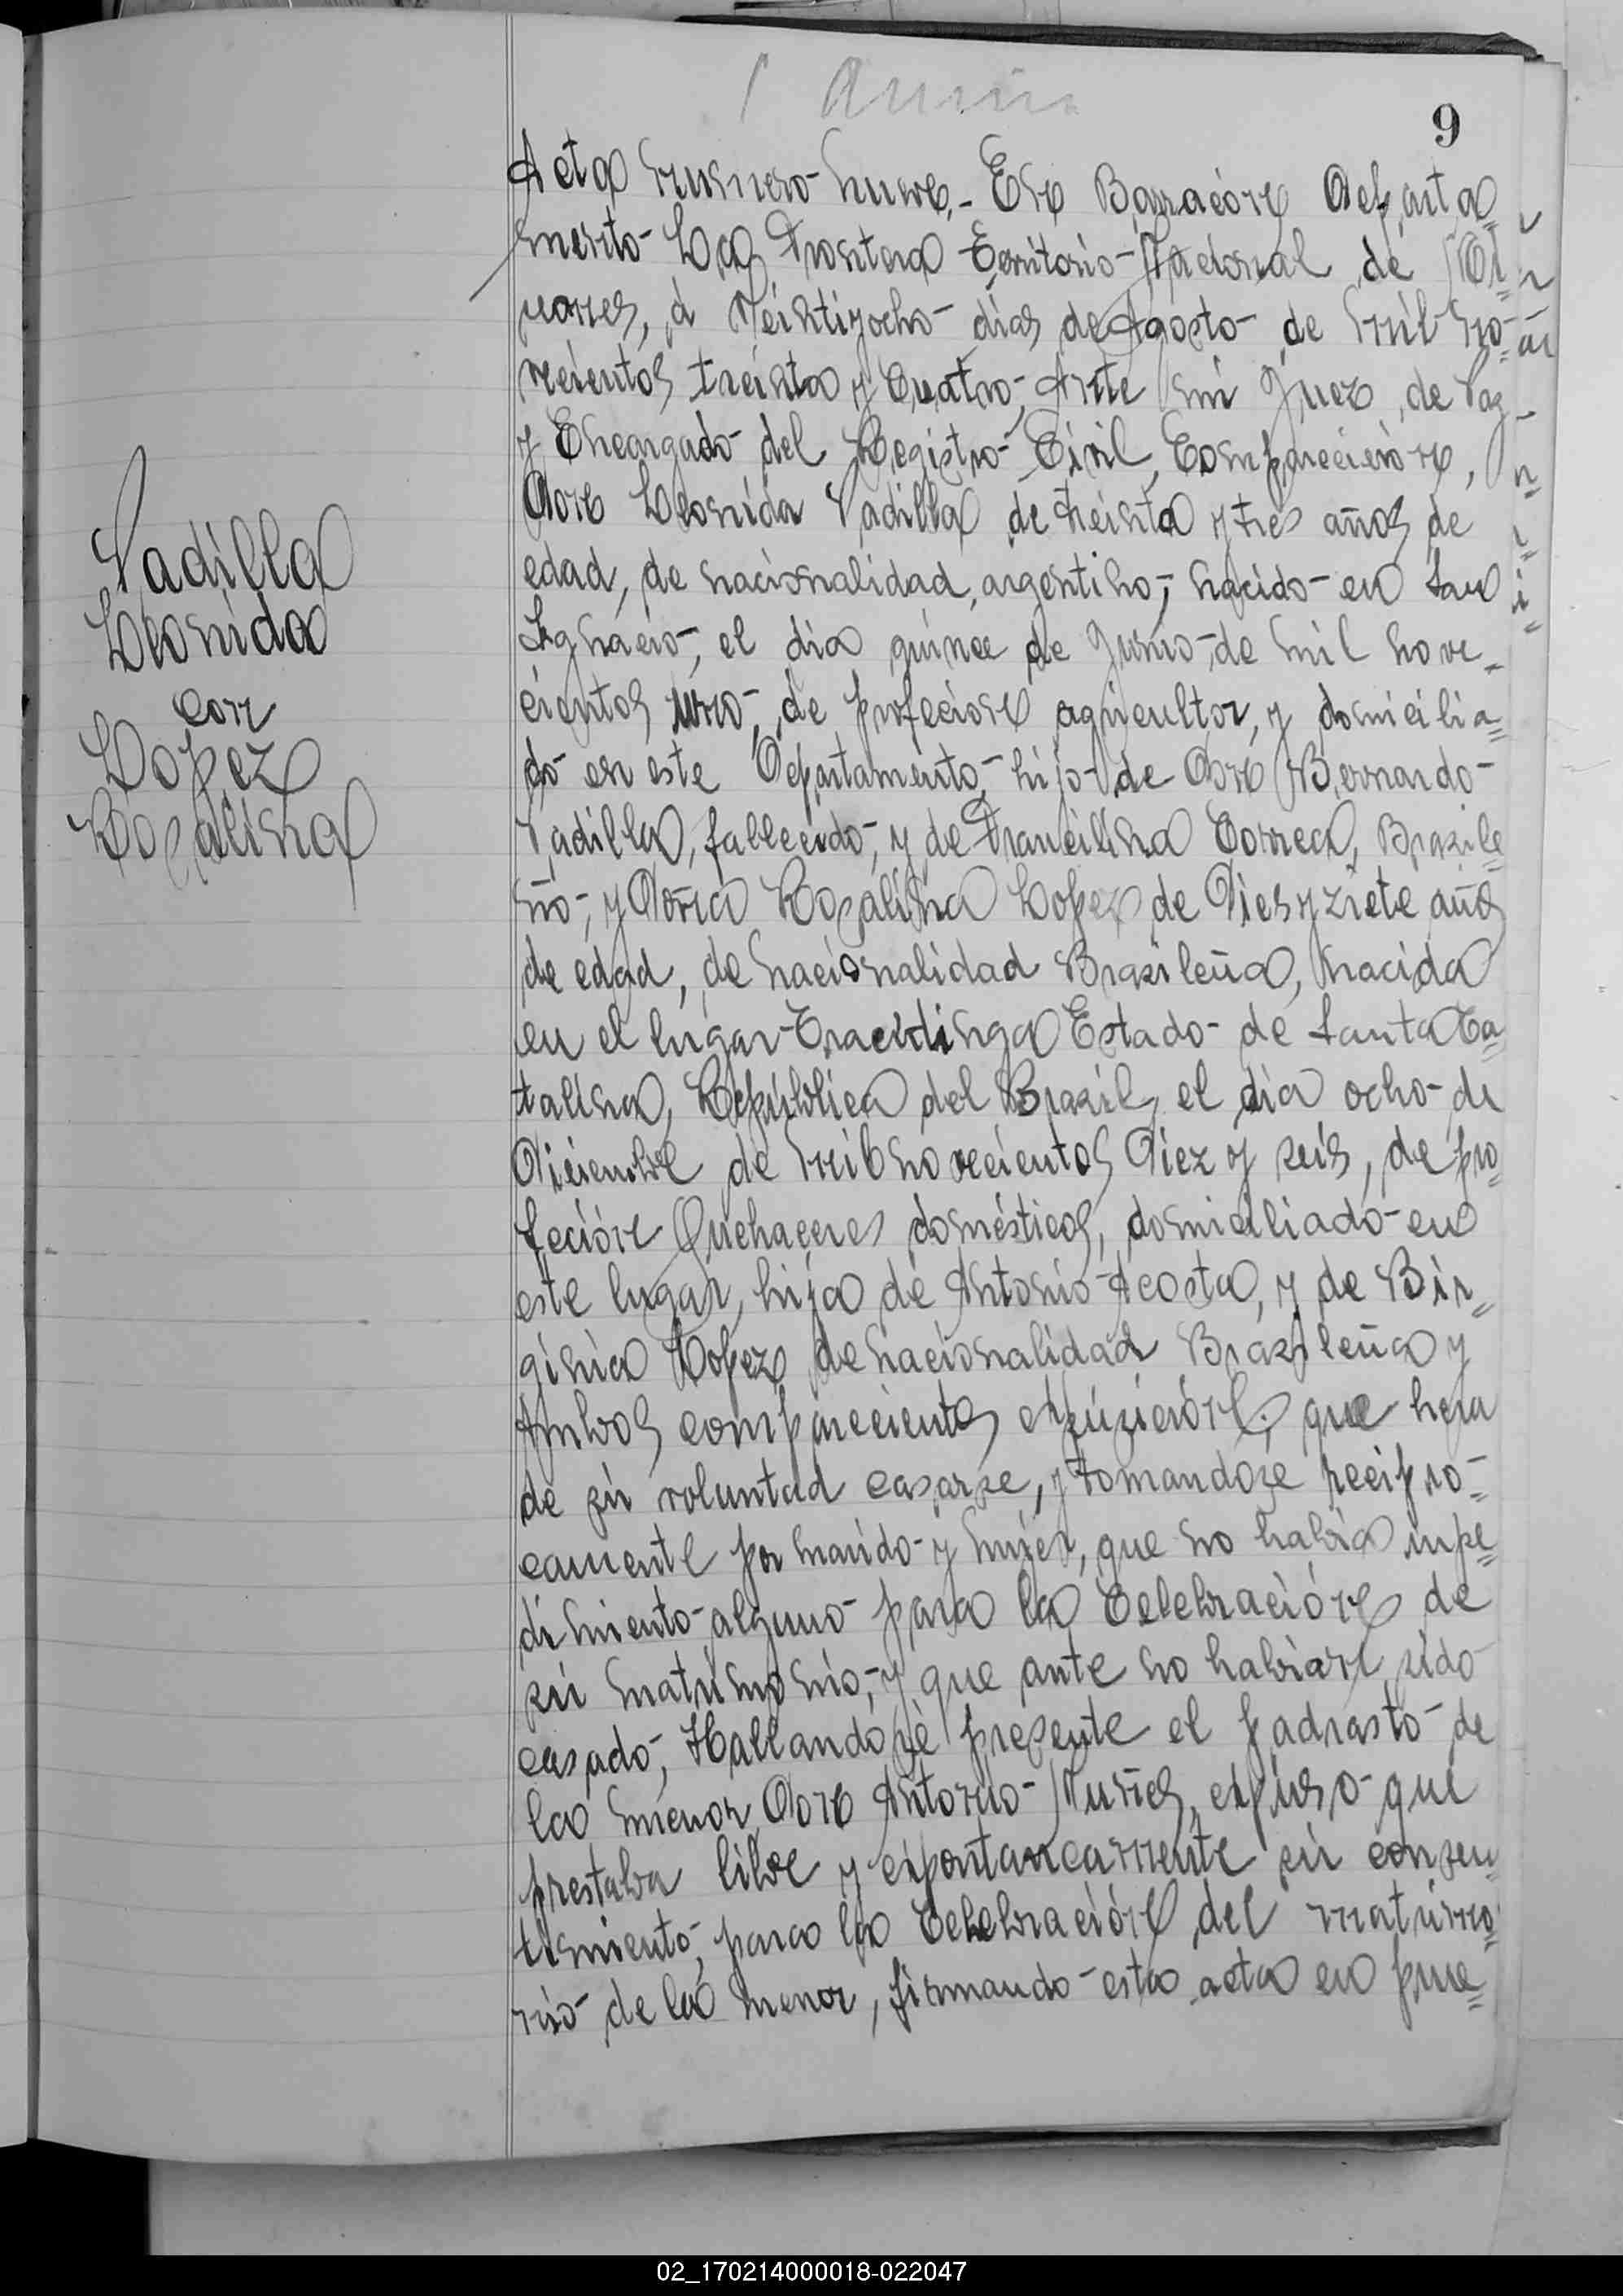 9
Acta numero nueve.- En Barracón Departa=
mento La Frontera Territorio Nacional de Mi=
ciones, a Veintiyocho dias de Agosto de mil no=
vecientos treinta y Cuatro, Ante mi Juez de Paz
y Encargado del Registro Civil, Comparecierón,
Don Leonida Padilla de treinta y tres años de
edad, de nacionalidad, argentino, nacido en San
Ignacio, el dia quince de Junio, de mil nove=
cientos uno, de profecion agricultor, y domicilia=
do en este Departamento, hijo de Don Bernardo
Padilla, fallecido, y de Francilina Correa, Brazile=
ño, y Doña Rosalina Lopez de Diesyziete años
de edad, de nacionalidad Brazileña, nacida
en el lugar Estado de Santa Ca=
talina, República del Brazil, el dia ocho de
Diciembre de mil novecientos Diez y seis, de pro=
feción Quehaceres domésticos, domiciliado en
este lugar, hija de Antonio Acosta, y de Bir=
ginia Lopez de nacionalidad Brazileña y
Ambos comparecientes expuzierón, que hera
de su voluntad casarse, y tomandoze recipro=
camente por marido y mujer, que no habia inpe=
dimiento alguno para la Celebración de
su matrimonio, y que ante no habian sido
casado, Hallandose presente el padrasto de
la menor Don Antonio Nuñes, expuso que
prestaba libre y expontaneamente su consen=
timiento, para la Celebración del matrimo=
nio de la menor, firmando esta acta en prue=
Padilla
Leonida
con
Lopez
Rosalina
02_170214000018-022047